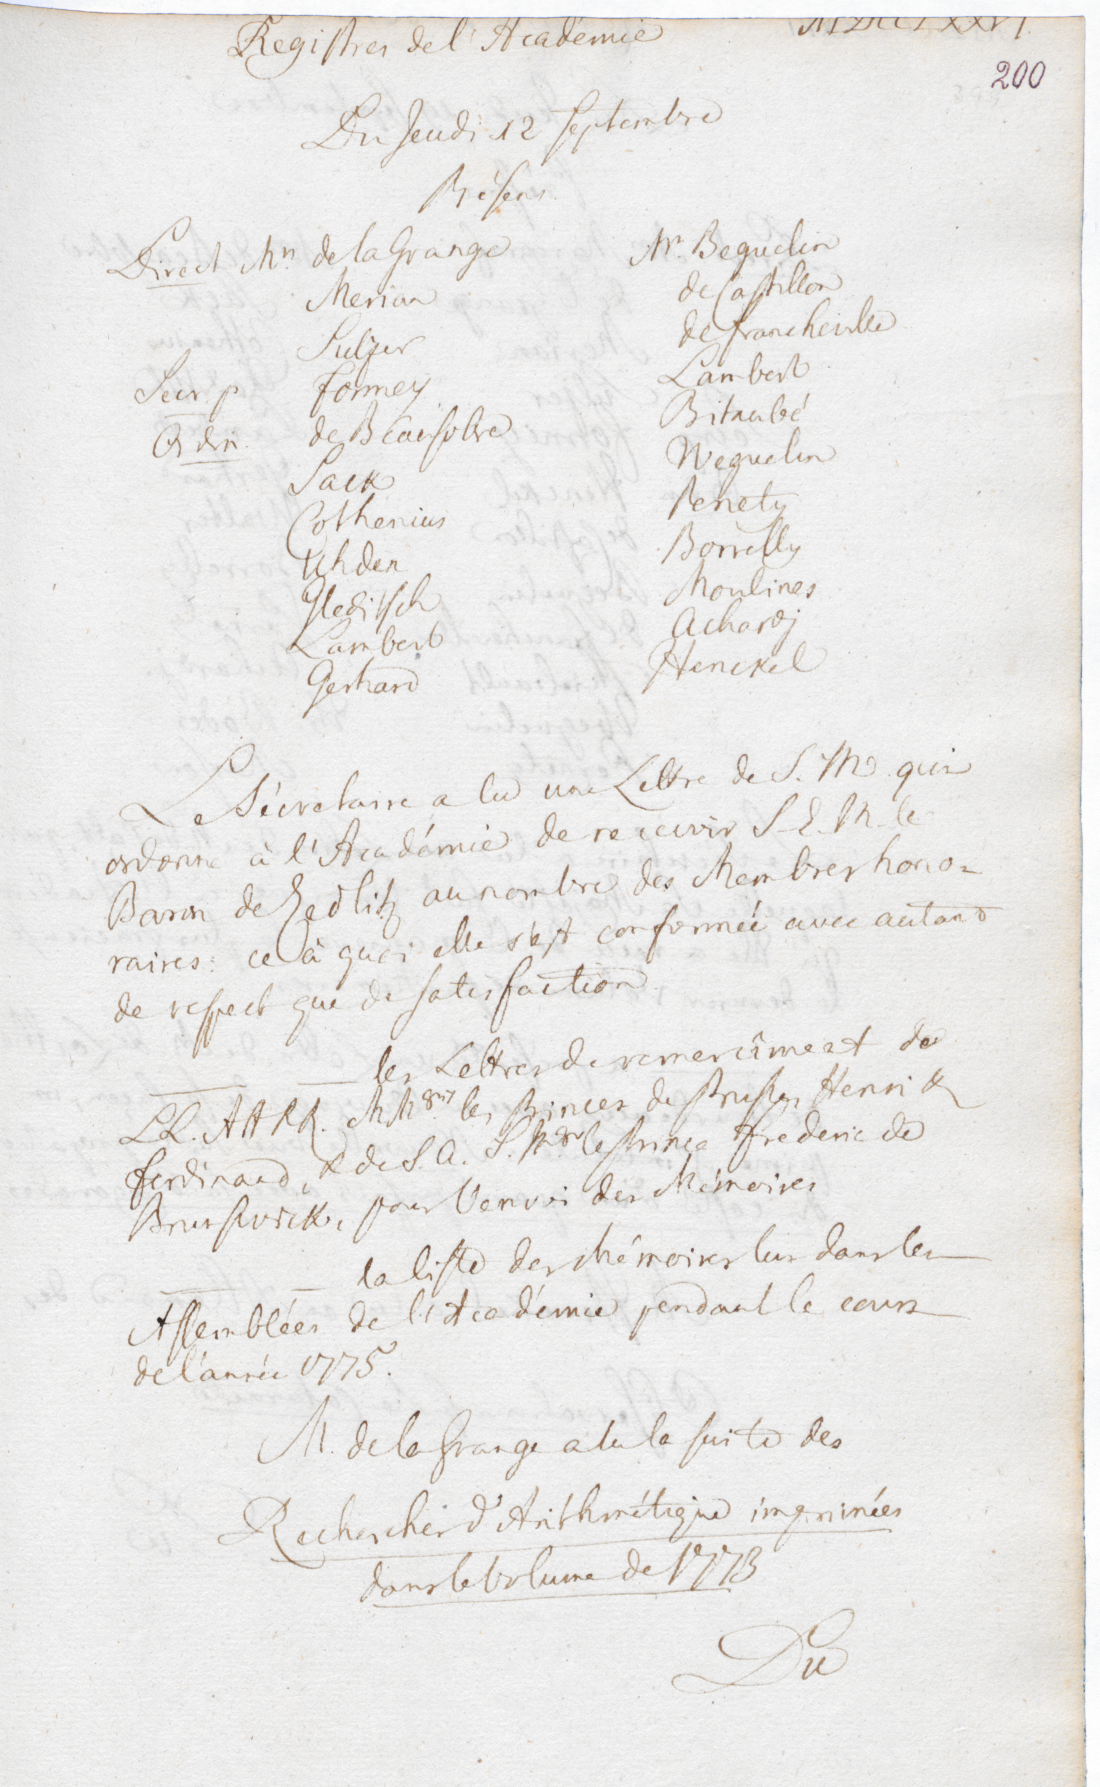 Registres de l'Academie MDCCLXXVI
200
Du Jeudi 12 Septembre
Présens
Direct Mrs. de la Grange
Merian
Sulzer
Secr. p. Formey
Ordin. de Beausobre
Sack
Cothenius
Uhden
Gleditsch
Lambert
Gerhard
Mr. Beguelin
de Castillon
de Francheville
Lambert
Bitaubé
Weguelin
Pernety
Borrelly
Moulines
Achard j
Henckel
Le Sécretaire a lu une Lettre de S. M. qui
ordonne à l'Académie de recevoir S. E. M. le
Baron de Zedlitz au nombre des Membres hono=
raires: ce à quoi elle s'est conformée avec autant
de respect que de satisfaction.
— — les Lettres de remercîment de
LL. AA RR. MMgrs les Princes de Prusse, Henri &
Ferdinand, & de S. A. S. Mgr le Prince Frederic de
Brunswick, pour l'envoi des Mémoires
— — la liste des Mémoires lus dans les
Assemblées de l'Académie pendant le cours
de l'année 1775.
M. de la Grange a lu la suite des
Recherches d'Arithmétique imprimées
dans le volume de 1773
Du